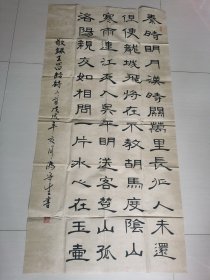 秦時明月漢時關萬里長征人未還
但使龍城飛將在不教胡馬度陰山
寒雨連江夜入吳平明送客楚山孤
洛陽親友如相問一片冰心在玉壺
敬錄王昌齡詩二首